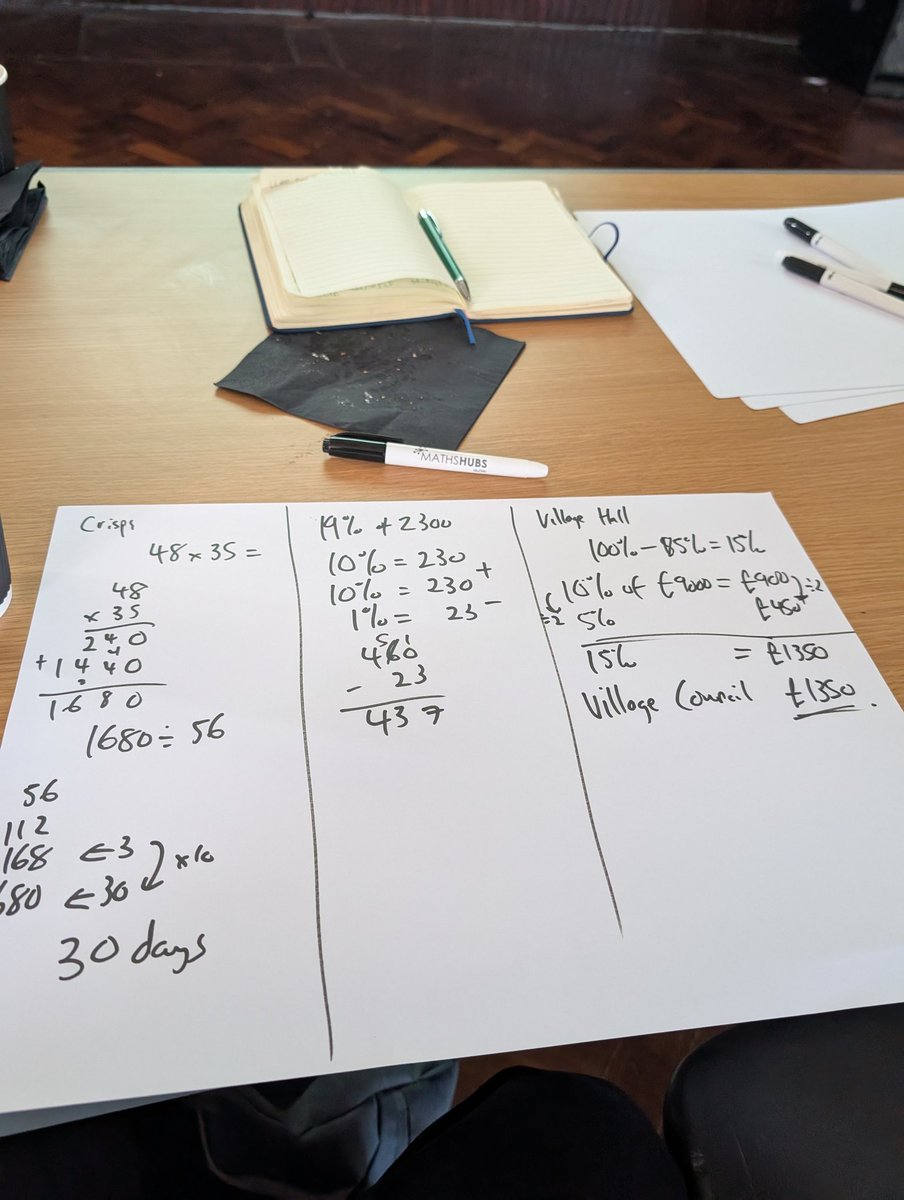 MATHSHUBS
Crisps
48 x 35 =
48
x 35
240
+ 1440
1680
1680 ÷ 56
56
112
168 ← 3
680 ← 30
x 10
30 days
19% of 2300
10% = 230
10% = 230 +
1% = 23 -
460
- 23
437
Village Hall
100% - 85% = 15%
10% of £9000 = £900
÷2 5% £450
÷2
15% = £1350
Village Council £1350.